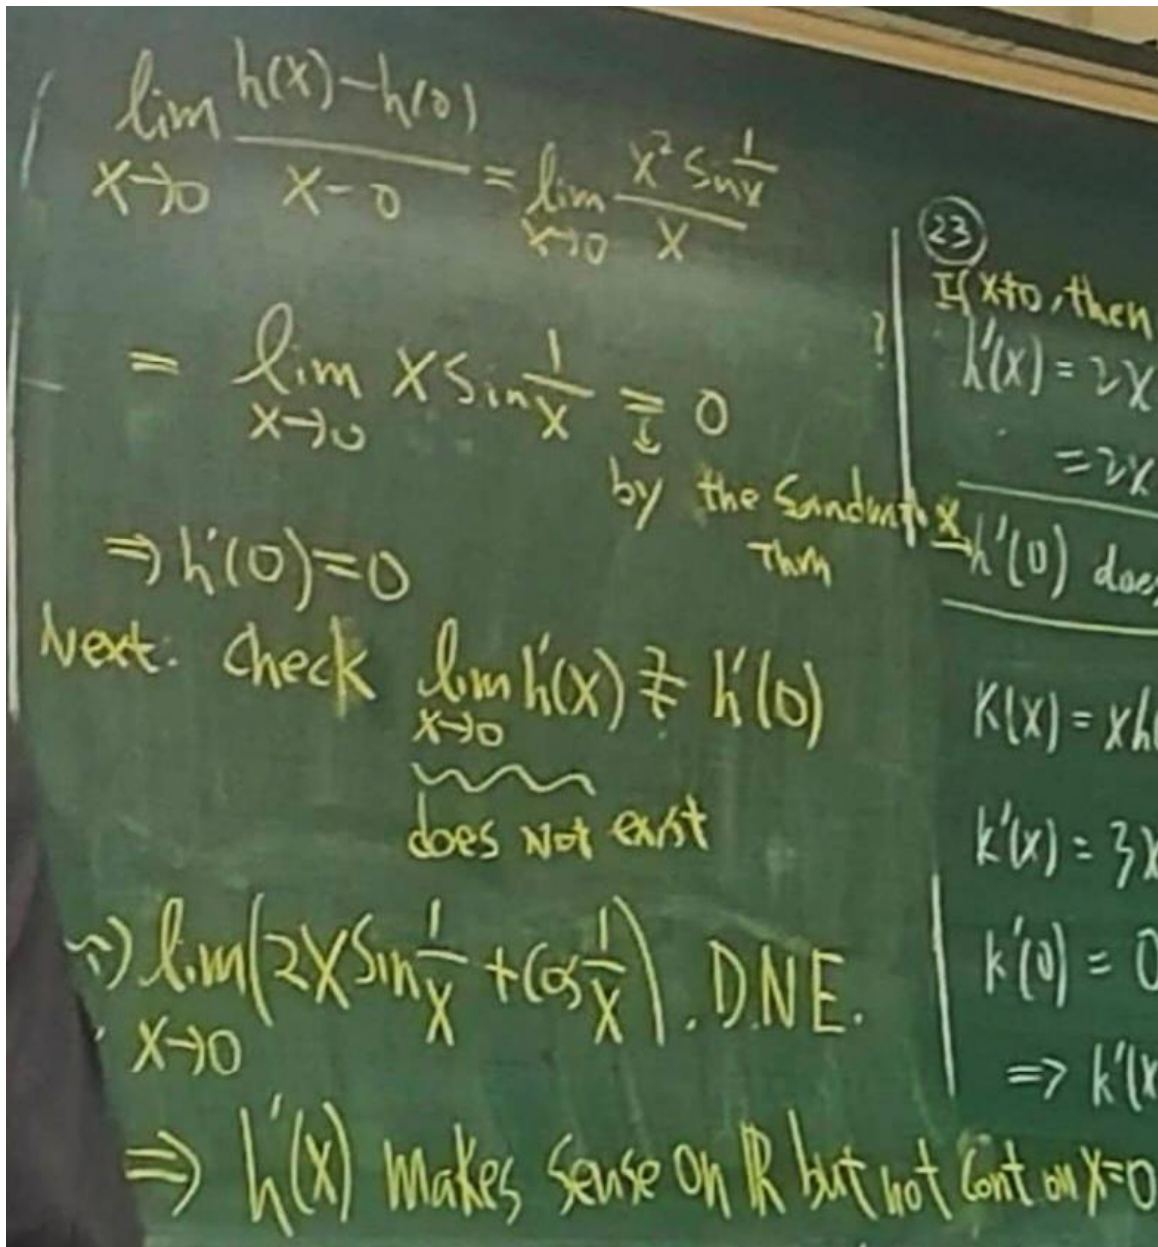 lim h(x)-h(0) / x-0 = lim x² sin 1/x / x
x→0 x→0
= lim x sin 1/x = 0
x→0 ↓
by the Sandwich
Thm
⇒ h'(0)=0
Next. Check lim h'(x) ≠ h'(0)
x→0
does Not exist
lim(2x sin 1/x + cos 1/x). D.N.E.
x→0
⇒ h'(x) makes sense on ℝ but not cont on x=0
23
If x≠0, then
h'(x) = 2x
= 2x
h'(0) does
K(x) = xh(
k'(x) = 3x
k'(0) = 0
⇒ k'(x